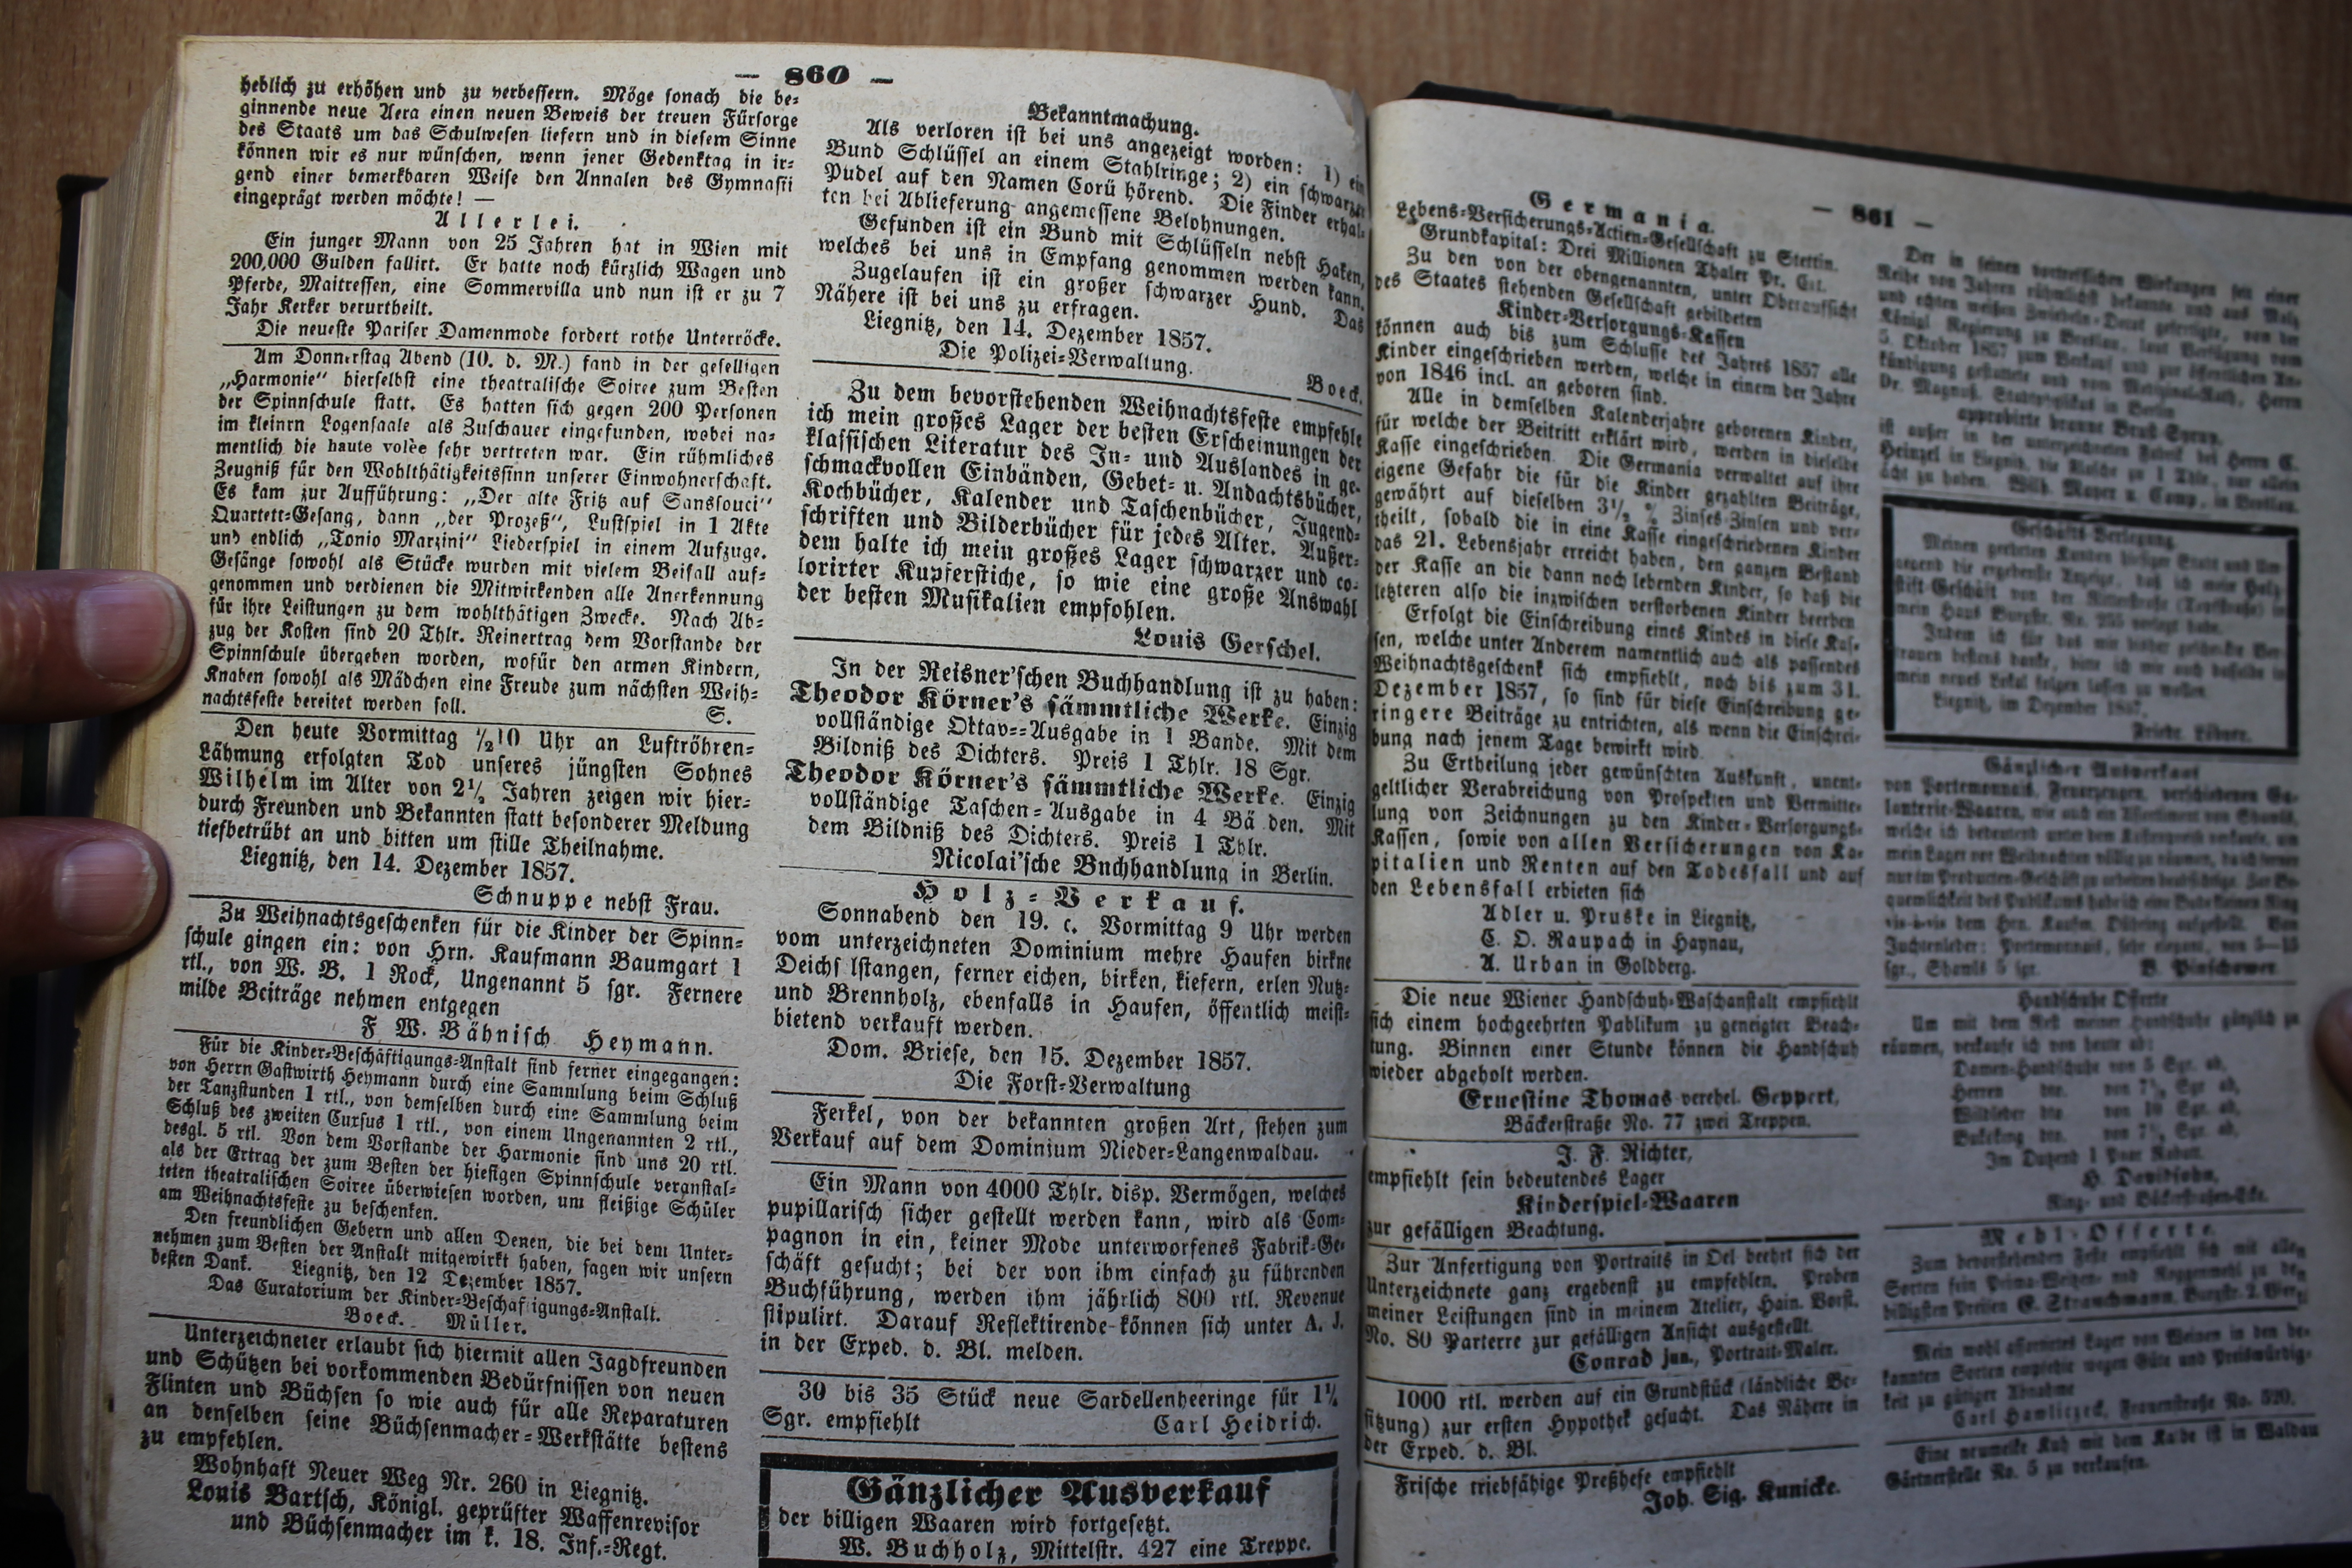 — 860 —
heblich zu erhöhen und zu verbessern. Möge sonach die be-
ginnende neue Aera einen neuen Beweis der treuen Fürsorge
des Staats um das Schulwesen liefern und in diesem Sinne
können wir es nur wünschen, wenn jener Gedenktag in ir-
gend einer bemerkbaren Weise den Annalen des Gymnasii
eingeprägt werden möchte! —
Allerlei.
Ein junger Mann von 25 Jahren hat in Wien mit
200,000 Gulden fallirt. Er hatte noch kürzlich Wagen und
Pferde, Maitressen, eine Sommervilla und nun ist er zu 7
Jahr Kerker verurtheilt.
Die neueste Pariser Damenmode fordert rothe Unterröcke.
Am Donnerstag Abend (10. d. M.) fand in der geselligen
„Harmonie“ hierselbst eine theatralische Soiree zum Besten
der Spinnschule statt. Es hatten sich gegen 200 Personen
im kleinen Logensaale als Zuschauer eingefunden, wobei na-
mentlich die haute volèe sehr vertreten war. Ein rühmliches
Zeugniß für den Wohlthätigkeitssinn unserer Einwohnerschaft.
Es kam zur Aufführung: „Der alte Fritz auf Sanssouci“
Quartett-Gesang, dann „der Prozeß“, Lustspiel in 1 Akte
und endlich „Tonio Marzini“ Liederspiel in einem Aufzuge.
Gesänge sowohl als Stücke wurden mit vielem Beifall auf-
genommen und verdienen die Mitwirkenden alle Anerkennung
für ihre Leistungen zu dem wohlthätigen Zwecke. Nach Ab-
zug der Kosten sind 20 Thlr. Reinertrag dem Vorstande der
Spinnschule übergeben worden, wofür den armen Kindern,
Knaben sowohl als Mädchen eine Freude zum nächsten Weih-
nachtsfeste bereitet werden soll. S.
Den heute Vormittag ½10 Uhr an Luftröhren-
Lähmung erfolgten Tod unseres jüngsten Sohnes
Wilhelm im Alter von 2½ Jahren zeigen wir hier-
durch Freunden und Bekannten statt besonderer Meldung
tiefbetrübt an und bitten um stille Theilnahme.
Liegnitz, den 14. Dezember 1857.
Schnuppe nebst Frau.
Zu Weihnachtsgeschenken für die Kinder der Spinn-
schule gingen ein: von Hrn. Kaufmann Baumgart 1
rtl., von W. B. 1 Rock, Ungenannt 5 sgr. Fernere
milde Beiträge nehmen entgegen
F W. Bähnisch Heymann.
Für die Kinder-Beschäftigungs-Anstalt sind ferner eingegangen:
von Herrn Gastwirth Heymann durch eine Sammlung beim Schluß
der Tanzstunden 1 rtl., von demselben durch eine Sammlung beim
Schluß des zweiten Cursus 1 rtl., von einem Ungenannten 2 rtl.,
desgl. 5 rtl. Von dem Vorstande der Harmonie sind uns 20 rtl.
als der Ertrag der zum Besten der hiesigen Spinnschule veranstal-
teten theatralischen Soiree überwiesen worden, um fleißige Schüler
am Weihnachtsfeste zu beschenken.
Den freundlichen Gebern und allen Denen, die bei dem Unter-
nehmen zum Besten der Anstalt mitgewirkt haben, sagen wir unsern
besten Dank. Liegnitz, den 12 Dezember 1857.
Das Curatorium der Kinder-Beschäftigungs-Anstalt.
Boeck. Müller.
Unterzeichneter erlaubt sich hiermit allen Jagdfreunden
und Schützen bei vorkommenden Bedürfnissen von neuen
Flinten und Büchsen so wie auch für alle Reparaturen
an denselben seine Büchsenmacher-Werkstätte bestens
zu empfehlen.
Wohnhaft Neuer Weg Nr. 260 in Liegnitz.
Louis Bartsch, Königl. geprüfter Waffenrevisor
und Büchsenmacher im k. 18. Inf.-Regt.
Bekanntmachung.
Als verloren ist bei uns angezeigt worden: 1) ein
Bund Schlüssel an einem Stahlringe; 2) ein schwarzer
Pudel auf den Namen Corü hörend. Die Finder erhal-
ten bei Ablieferung angemessene Belohnungen.
Gefunden ist ein Bund mit Schlüsseln nebst Haken,
welches bei uns in Empfang genommen werden kann.
Zugelaufen ist ein großer schwarzer Hund. Das
Nähere ist bei uns zu erfragen.
Liegnitz, den 14. Dezember 1857.
Die Polizei-Verwaltung.
Boeck.
Zu dem bevorstehenden Weihnachtsfeste empfehle
ich mein großes Lager der besten Erscheinungen der
klassischen Literatur des In- und Auslandes in ge-
schmackvollen Einbänden, Gebet- u. Andachtsbücher,
Kochbücher, Kalender und Taschenbücher, Jugend-
schriften und Bilderbücher für jedes Alter. Außer-
dem halte ich mein großes Lager schwarzer und co-
lorirter Kupferstiche, so wie eine große Answahl
der besten Musikalien empfohlen.
Louis Gerschel.
In der Reisner'schen Buchhandlung ist zu haben:
Theodor Körner's sämmtliche Werke. Einzig
vollständige Oktav-=Ausgabe in 1 Bande. Mit dem
Bildniß des Dichters. Preis 1 Thlr. 18 Sgr.
Theodor Körner's sämmtliche Werke. Einzig
vollständige Taschen-Ausgabe in 4 Bä den. Mit
dem Bildniß des Dichters. Preis 1 Thlr.
Nicolai'sche Buchhandlung in Berlin.
Holz-Verkauf.
Sonnabend den 19. c. Vormittag 9 Uhr werden
vom unterzeichneten Dominium mehre Haufen birkne
Deichs lstangen, ferner eichen, birken, kiefern, erlen Nutz-
und Brennholz, ebenfalls in Haufen, öffentlich meist-
bietend verkauft werden.
Dom. Briese, den 15. Dezember 1857.
Die Forst-Verwaltung
Ferkel, von der bekannten großen Art, stehen zum
Verkauf auf dem Dominium Nieder-Langenwaldau.
Ein Mann von 4000 Thlr. disp. Vermögen, welches
pupillarisch sicher gestellt werden kann, wird als Com-
pagnon in ein, keiner Mode unterworfenes Fabrik-Ge-
schäft gesucht; bei der von ihm einfach zu führenden
Buchführung, werden ihm jährlich 800 rtl. Revenue
stipulirt. Darauf Reflektirende können sich unter A. J.
in der Exped. d. Bl. melden.
30 bis 35 Stück neue Sardellenheeringe für 1¼
Sgr. empfiehlt Carl Heidrich.
Gänzlicher Ausverkauf
der billigen Waaren wird fortgesetzt.
W. Buchholz, Mittelstr. 427 eine Treppe.
— 861 —
Germania.
Lebens-Versicherungs-Actien-Gesellschaft zu Stettin.
Grundkapital: Drei Millionen Thaler Pr. Crt.
Zu den von der obengenannten, unter Oberaufsicht
des Staates stehenden Gesellschaft gebildeten
Kinder-Versorgungs-Kassen
können auch bis zum Schlusse des Jahres 1857 alle
Kinder eingeschrieben werden, welche in einem der Jahre
von 1846 incl. an geboren sind.
Alle in demselben Kalenderjahre geborenen Kinder,
für welche der Beitritt erklärt wird, werden in dieselbe
Kasse eingeschrieben. Die Germania verwaltet auf ihre
eigene Gefahr die für die Kinder gezahlten Beiträge,
gewährt auf dieselben 3½ % Zinses-Zinsen und ver-
theilt, sobald die in eine Kasse eingeschriebenen Kinder
das 21. Lebensjahr erreicht haben, den ganzen Bestand
der Kasse an die dann noch lebenden Kinder, so daß die
letzteren also die inzwischen verstorbenen Kinder beerben
Erfolgt die Einschreibung eines Kindes in diese Kas-
sen, welche unter Anderem namentlich auch als passendes
Weihnachtsgeschenk sich empfiehlt, noch bis zum 31.
Dezember 1857, so sind für diese Einschreibung ge-
ringere Beiträge zu entrichten, als wenn die Einschrei-
bung nach jenem Tage bewirkt wird.
Zu Ertheilung jeder gewünschten Auskunft, unent-
geltlicher Verabreichung von Prospekten und Vermitte-
lung von Zeichnungen zu den Kinder-Versorgungs-
Kassen, sowie von allen Versicherungen von Ka-
pitalien und Renten auf den Todesfall und auf
den Lebensfall erbieten sich
Adler u. Pruske in Liegnitz,
C. O. Raupach in Haynau,
A. Urban in Goldberg.
Die neue Wiener Handschuh-Waschanstalt empfiehlt
sich einem hochgeehrten Publikum zu geneigter Beach-
tung. Binnen einer Stunde können die Handschuh
wieder abgeholt werden.
Ernestine Thomas verehel. Geppert,
Bäckerstraße No. 77 zwei Treppen.
J. F. Richter,
empfiehlt sein bedeutendes Lager
Kinderspiel-Waaren
zur gefälligen Beachtung.
Zur Anfertigung von Portraits in Oel beehrt sich der
Unterzeichnete ganz ergebenst zu empfehlen. Proben
meiner Leistungen sind in meinem Atelier, Hain. Vorst.
No. 80 Parterre zur gefälligen Ansicht ausgestellt.
Conrad jun., Portrait-Maler.
1000 rtl. werden auf ein Grundstück (ländliche Be-
sitzung) zur ersten Hypothek gesucht. Das Nähere in
der Exped. d. Bl.
Frische triebfähige Preßhefe empfiehlt
Joh. Sig. Kunicke.
Der in seinen vortrefflichen Wirkungen seit einer
Reihe von Jahren rühmlichst bekannte und aus Malz
und echten weißen Zwiebeln-Decoct gefertigte, von der
Königl Regierung zu Breslau, laut Verfügung vom
5. Oktober 1857 zum Verkauf und zur öffentlichen An-
kündigung gestattete und vom Medizinal-Rath, Herrn
Dr. Magnus, Stadtphysikus in Berlin
approbirte braune Brust-Syrup,
ist außer in der unterzeichneten Fabrik bei Herrn C.
Heinzel in Liegnitz, die Flasche zu 1 Thlr. nur allein
ächt zu haben. Wilh. Mayer u. Comp. in Breslau.
Geschäfts-Verlegung.
Meinen geehrten Kunden hiesiger Stadt und Um-
gegend die ergebenste Anzeige, daß ich mein Holz-
stift-Geschäft von der Ritterstraße (Topfstraße) in
mein Haus Burgstr. No. 255 verlegt habe.
Indem ich für das mir bisher geschenkte Ver-
trauen bestens danke, bitte ich mir auch dasselbe in
mein neues Lokal folgen lassen zu wollen
Liegnitz, im Dezember 1857.
Gänzlicher Ausverkauf
von Portemonnais, Feuerzeugen, verschiedenen Ga-
lanterie-Waaren, wie auch ein Assortiment von Shawls,
welche ich bedeutend unter dem Kostenpreis verkaufe, um
mein Lager vor Weihnachten völlig zu räumen, da ich ferner
nur im Producten-Geschäft zu arbeiten beabsichtige. Zur Be-
quemlichkeit des Publikums habe ich eine Bude kleinen Ring
vis-à-vis dem Hrn. Kaufm. Dühring aufgestellt. Von
Juchtenleder: Portemonnais, sehr elegant, von 5—15
sgr., Shawls 5 sgr. B. Pinschower.
Handschuhe Offerte
Um mit dem Rest meiner Handschuhe gänzlich zu
räumen, verkaufe ich von heute ab:
Damen-Handschuhe von 5 Sgr ab,
Herren dto. von 7½ Sgr ab,
Wildleder dto. von 10 Sgr. ab,
Buksking dto. von 7½ Sgr. ab,
Im Dutzend 1 Paar Rabatt.
H. Davidsohn,
Ring- und Bäckerstraßen-Ecke.
Mehl-Offerte.
Zum bevorstehenden Feste empfiehlt sich mit allen
Sorten fein Prima-Weitzen- und Roggenmehl zu den
billigsten Preisen E. Strauchmann, Burgstr.
Mein wohl assortirtes Lager von Weinen in den be-
kannten Sorten empfehle wegen Güte und Preiswürdig-
keit zu gütiger Abnahme
Carl Hawlitzeck, Frauenstraße No. 520.
Eine neumelke Kuh mit dem Kalbe ist in Waldau
Gärtnerstelle No. 5 zu verkaufen.